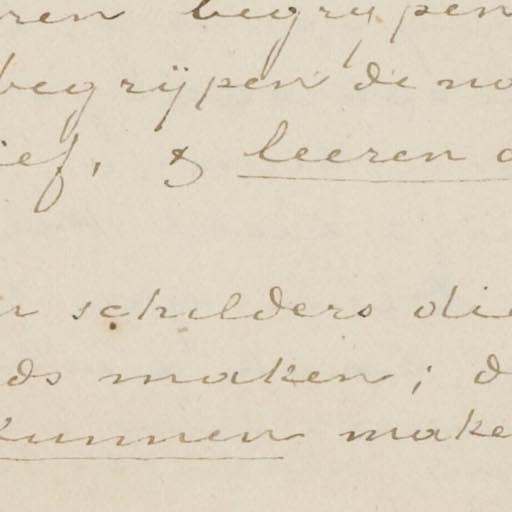 ren begrypen
begrÿpen de no
ief, & leeren d
n schilders die
ds maken; d
kunnen make